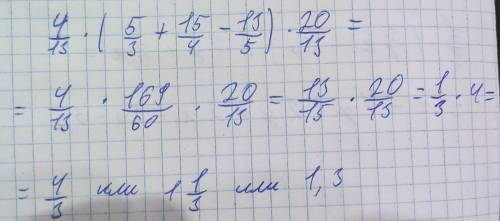 4/13 · (5/3 + 15/4 - 13/5) · 20/13 =
= 4/13 · 169/60 · 20/13 = 13/15 · 20/13 = 1/3 · 4 =
= 4/3 или 1 1/3 или 1,3